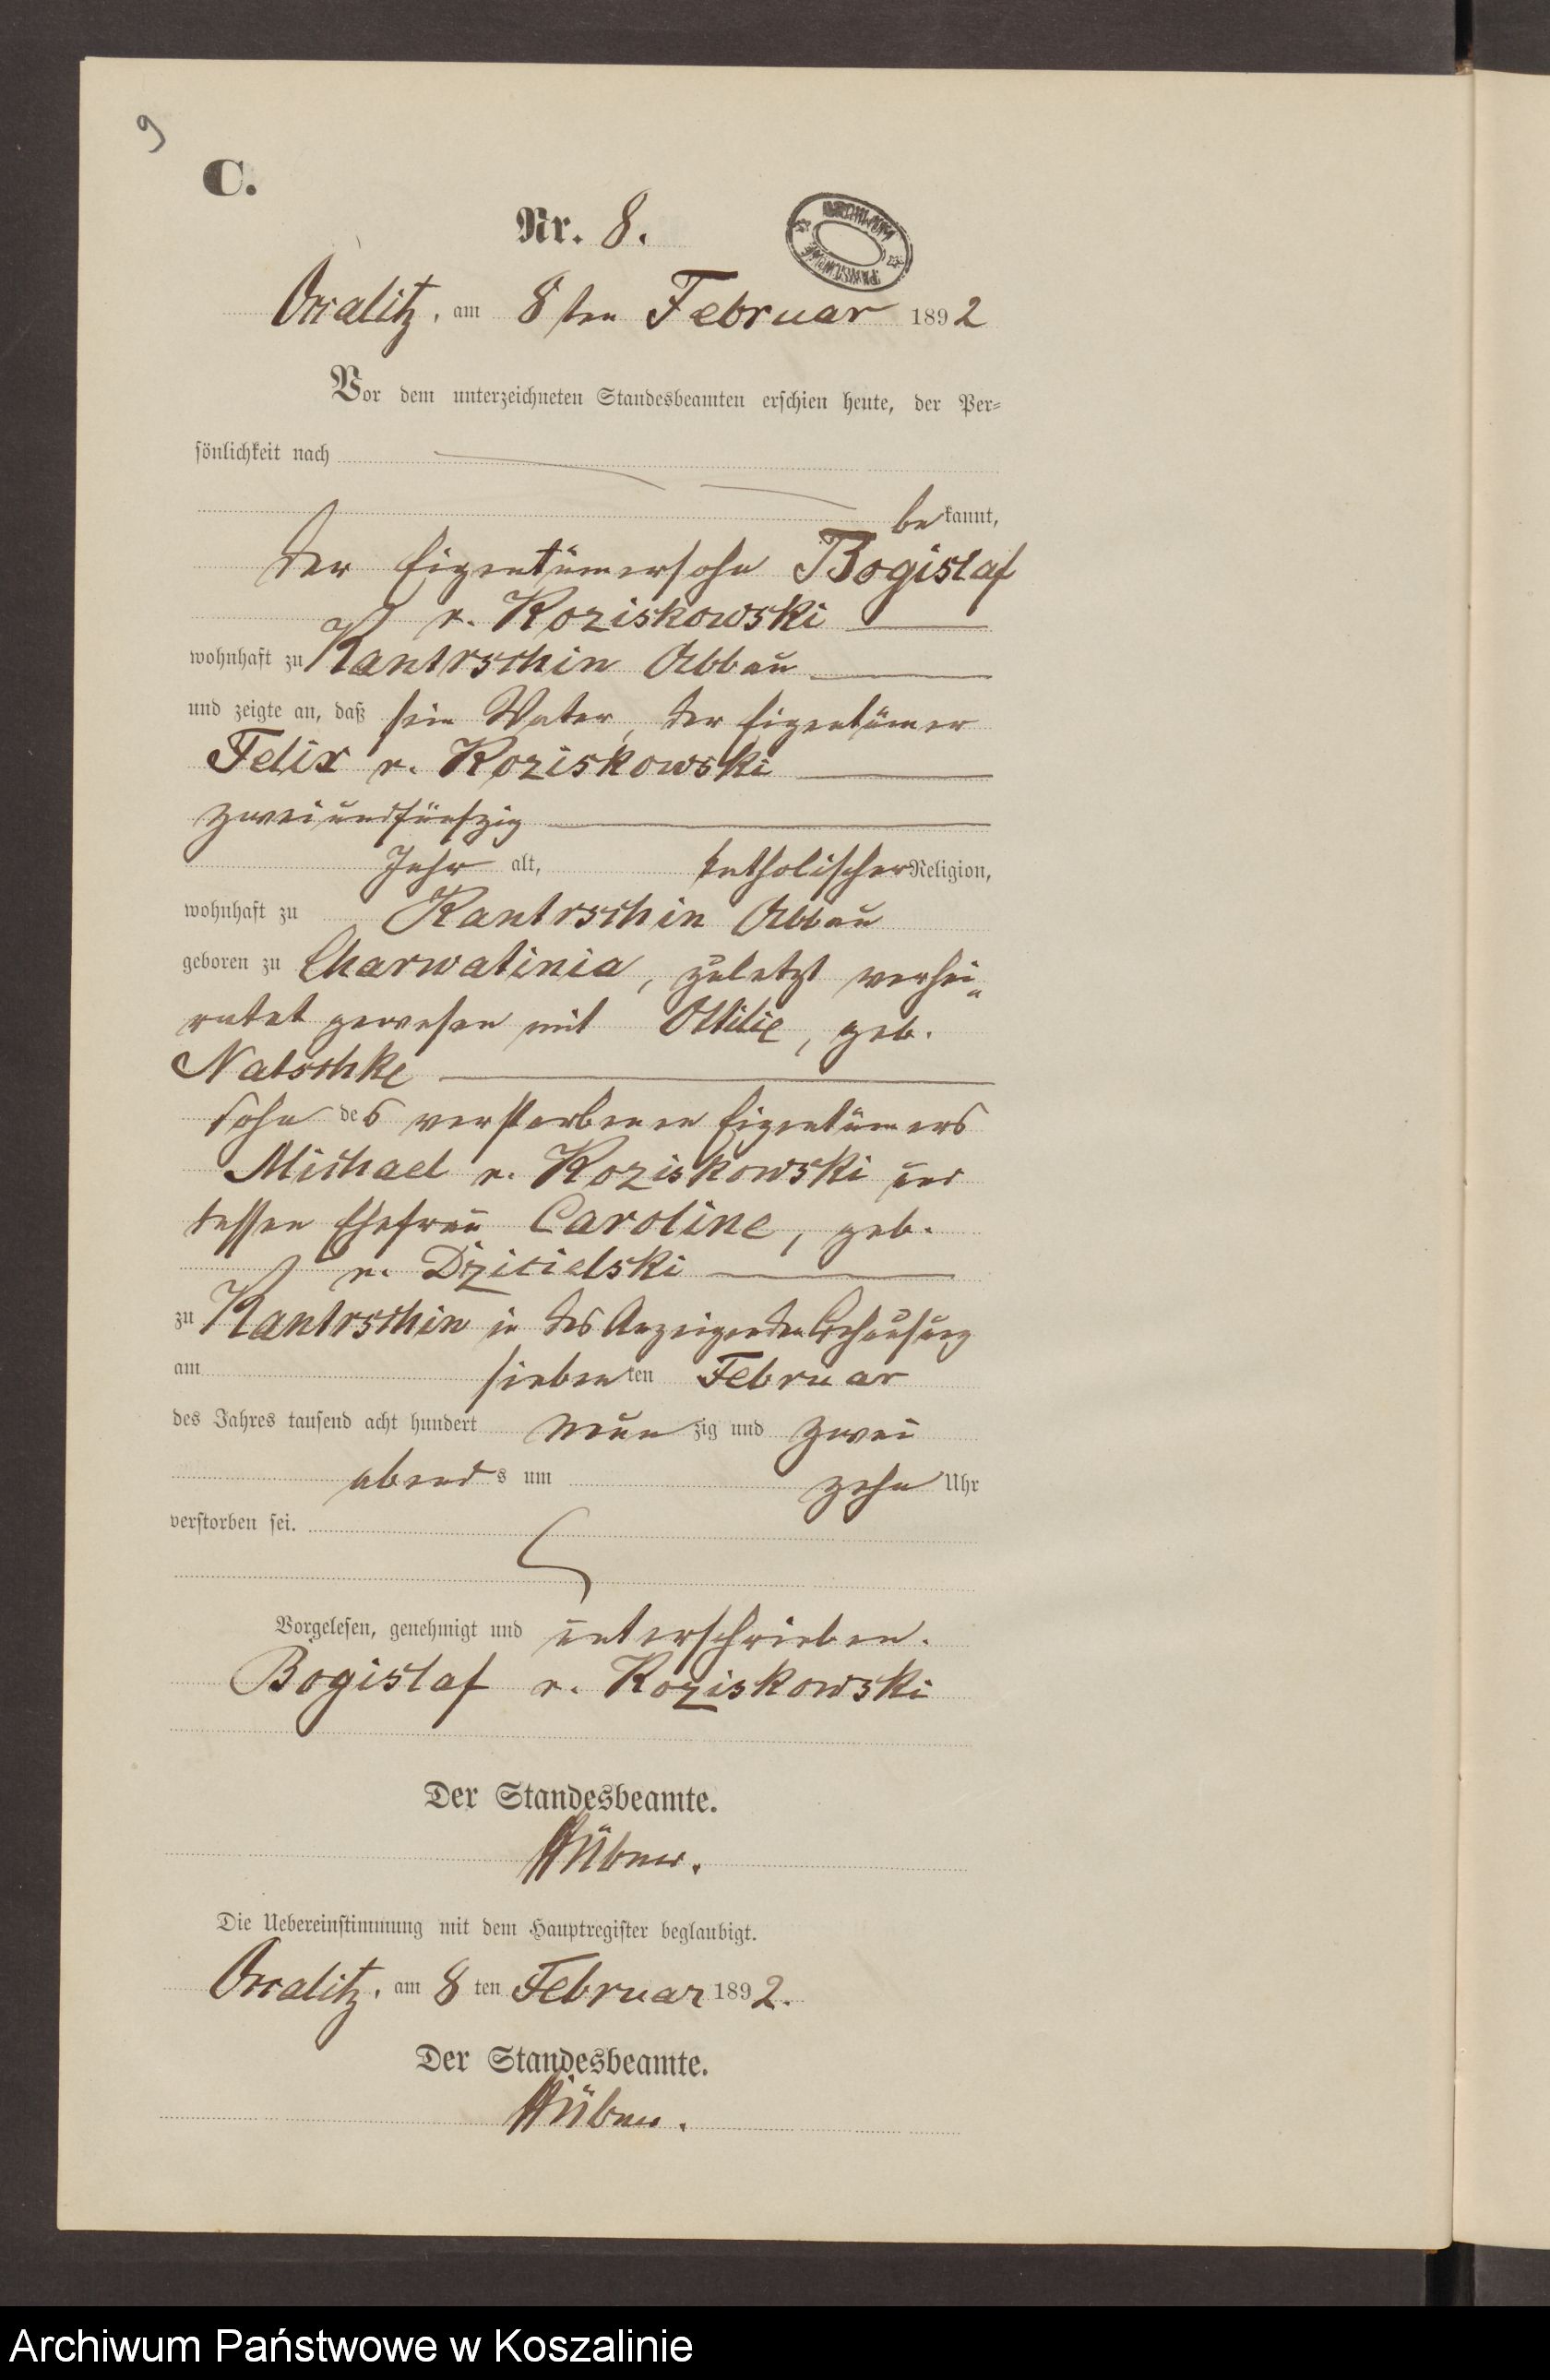 9
C.
Nr. 8.
Occalitz, am 8ten Februar 1892
Vor dem unterzeichneten Standesbeamten erschien heute, der Per-
sönlichkeit nach
bekannt,
der Eigentümersohn Bogislaf
v. Koziskowski
wohnhaft zu Kantrschin Abbau
und zeigte an, daß sein Vater, der Eigentümer
Felix v. Koziskowski
zweiundfünfzig
Jahr alt, katholischer Religion,
wohnhaft zu Kantrschin Abbau
geboren zu Charwatinia, zuletzt verhei-
ratet gewesen mit Ottilie, geb.
Natschke
Sohn des verstorbenen Eigentümers
Michael v. Koziskowski und
dessen Ehefrau Caroline, geb.
v. Dzicielski
zu Kantrschin in des Anzeigenden Behausung
am siebenten Februar
des Jahres tausend acht hundert neunzig und zwei
abends um zehn Uhr
verstorben sei.
Vorgelesen, genehmigt und unterschrieben.
Bogislaf v. Koziskowski
Der Standesbeamte.
Hübner.
Die Uebereinstimmung mit dem Hauptregister beglaubigt.
Occalitz, am 8ten Februar 1892.
Der Standesbeamte.
Hübner.
Archiwum Państwowe w Koszalinie